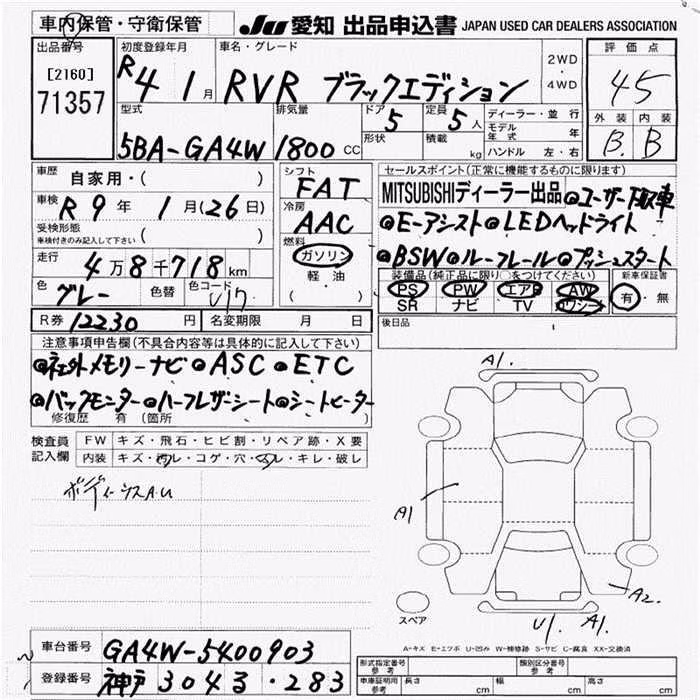 車内保管・守衛保管
JU 愛知 出品申込書 JAPAN USED CAR DEALERS ASSOCIATION
出品番号 初度登録年月 車名・グレード 2WD ・ 4WD 評価点
[2160] 71357 R4 1月 RVR ブラックエディション 45
型式 排気量 ドア 5 定員 5人 ディーラー・並行 外装 内装
5BA-GA4W 1800 CC 形状 積載 kg モデル年式 年 B. B
ハンドル 左・右
車歴 自家用・( ) シフト FAT セールスポイント(正常に機能するものに限ります)
車検 R9年 1月(26日) 冷房 AAC MITSUBISHIディーラー出品 ◎ユーザー下取車
受検形態 車検付きのみ記入して下さい ( ) 燃料 ◎E-アシスト ◎LEDヘッドライト
走行 4万8千718km ガソリン 軽油 ( ) ◎BSW ◎ルーフレール ◎プッシュスタート
色 グレー 色替 色コード U17 装備品(純正品に限り○をつけてください) 新車保証書
PS PW エアB AW 有・無
SR ナビ TV カワシート
R券 12230円 名変期限 月 日 後日品
注意事項申告欄(不具合内容等は具体的に記入して下さい)
◎社外メモリーナビ ◎ASC ◎ETC
◎バックモニター ◎ハーフレザーシート ◎シートヒーター
修復歴 有(箇所
検査員記入欄 FW キズ・飛石・ヒビ割・リペア跡・X要
内装 キズ・汚レ・コゲ・穴・スレ・キレ・破レ
ボディーシスA.U
A1.
A1
A2.
スペア U1. A1.
A-キズ E-エクボ U-凹み W-補修跡 S-サビ C-腐食 XX-交換済
車台番号 GA4W-5400903
登録番号 神戸 304 る・283
形式指定番号 参考 類別区分番号 参考
車庫証明用 参考 長さ cm 幅 cm 高さ cm